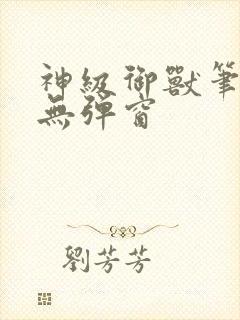 神級御獸筆
無彈窗
劉芳芳